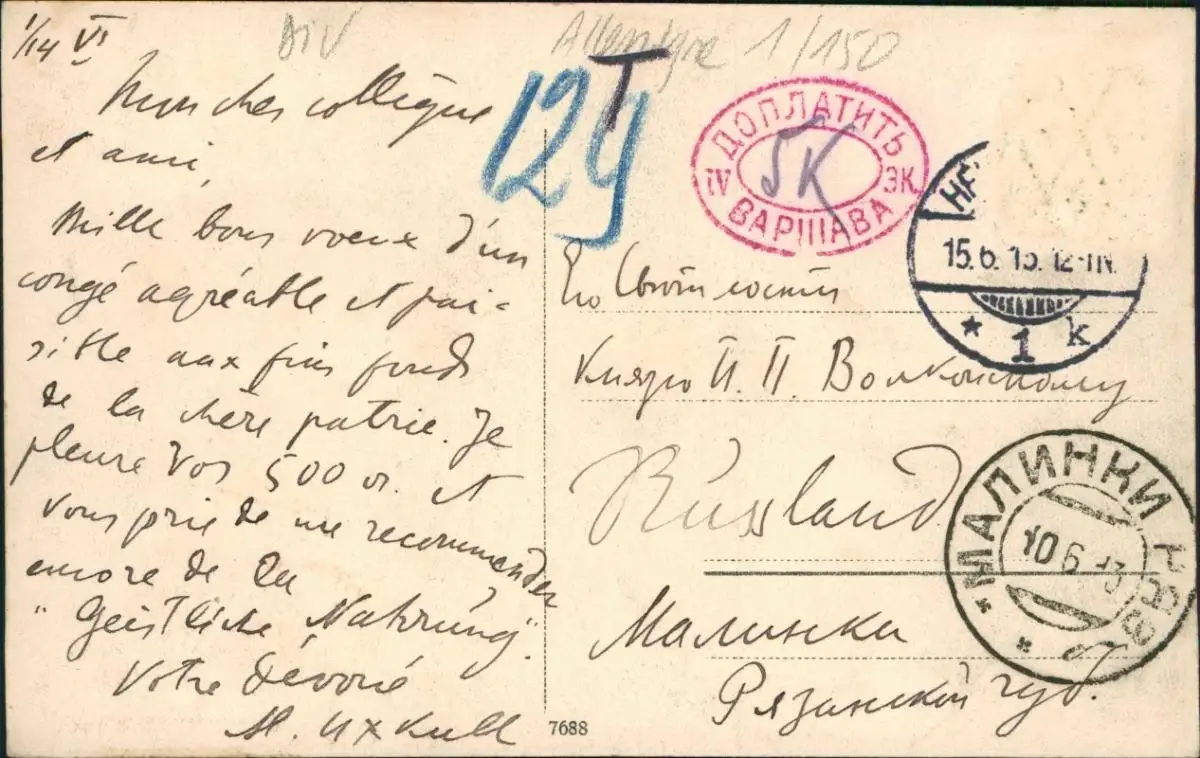 1/14 VI
Mon cher collègue
et ami,
Mille bons voeux d'un
congé agréable et pai-
sible aux fins fonds
de la chère patrie. Je
pleure vos 500 r. et
vous prie de me recommander
encore de la
"Geistliche Nahrung".
Votre dévoué
M. Uxkull
DIV
Allemagne 1/150
T
12
ДОПЛАТИТЬ
IV 5К ЭК.
ВАРШАВА
15.6.13. 12-1N.
* 1 k
Его Светлости
Князю П. П. Волконскому
Russland
МАЛИНКИ РЯЗ
10 6 13
Малинки
Рязанской губ.
7688